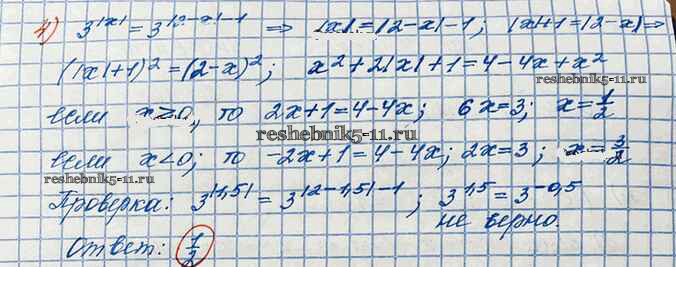 4) 3^|x| = 3^|2-x|-1 ⇒ |x| = |2-x| - 1; |x| + 1 = |2-x| ⇒
(|x|+1)² = (2-x)²; x² + 2|x| + 1 = 4 - 4x + x²
reshebnik5-11.ru
если x≥0, то 2x+1=4-4x; 6x=3; x=1/2
reshebnik5-11.ru
если x<0; то -2x+1=4-4x; 2x=3; x=3/2
reshebnik5-11.ru
Проверка: 3^|1,5| = 3^|2-1,5|-1; 3^1,5 = 3^-0,5
не верно.
Ответ: 1/2